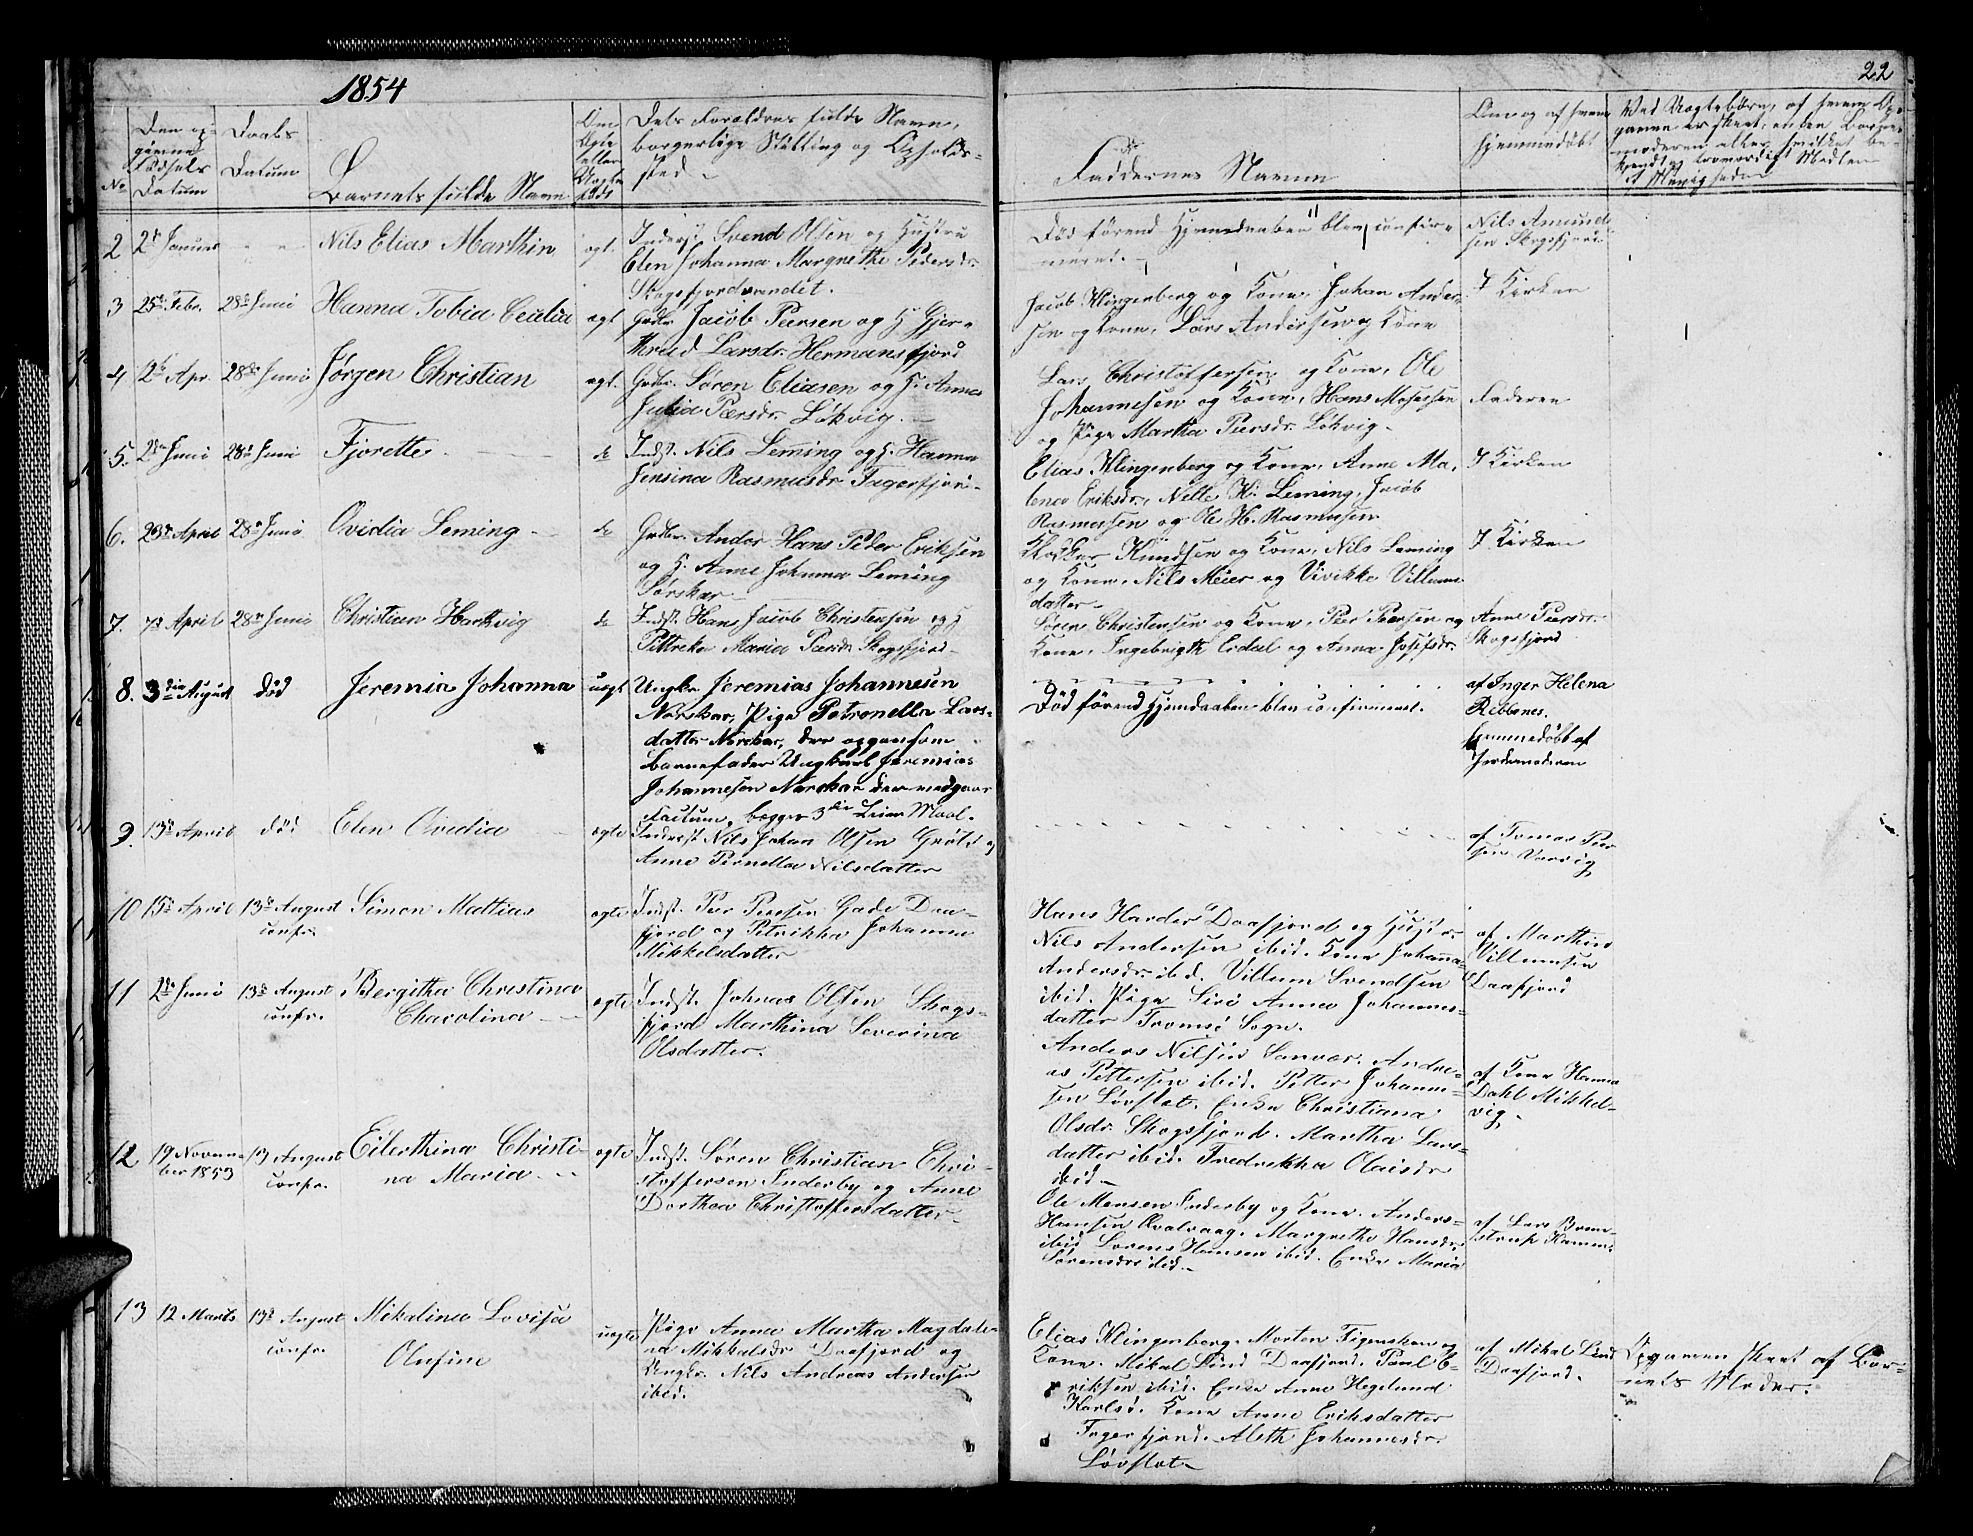 1854
22
No
Den op-
givne
Fødsels
Datum
Daabs
Datum
Barnets fulde Navn
Om
Ægte
eller
Uægte
født
Dets Forældres fulde Navn,
borgerlige Stilling og Opholds-
sted
Faddernes Navne
Om og af hvem
hjemmedøbt
Ved Uægtebørn, af hvem Op-
gaven er skeet, enten Barne-
moderen eller
2
Nils Elias Marthin
ægt.
Inderst. Svend Olsen og Hustru
Elen Johanna Margrethe Pedersdr.
Skogsfjordvandet.
Død førend Hjemmedaaben blev confir-
meret.
Nils Amund-
sen Skogsfjord
3
25de Febr.
28de Juni
Hanna Tobia Cecilia
ægt
Gbdr. Jacob Peersen og H. Gjer-
thrud Larsdr. Hermansfjord
Jacob Klingenberg og Kone, Johan Ander-
sen og Kone, Lars Andersen og Kone
I Kirken
4
2de Apr.
28de Juni
Jørgen Christian
ægt.
Gbdr. Søren Eliasen og H. Anne
Julia Pærsdr. Løkvig.
Lars Christoffersen og Kone, Ole
Johannesen og Kone, Hans Mosessen
og Pige Martha Piersdr. Løkvig
Faderen
5.
2den Juni
28de Juni
Fjorette
do
Indst. Nils Leming og H. Hanna
Jensina Rasmusdr Fagerfjord
Elias Klingenberg og Kone, Anne Ma-
lena Eriksdr., Nille H. Leming, Jacob
Rasmussen og Ole H. Rasmusen
I Kirken
6.
23de April
28de Juni
Ovidia Leming
do
Gbdr. Andor Hans Peder Eriksen
og H. Anne Johanna Leming
Sørskar
Knudsen og Kone, Nils Leming
og Kone, Nils Meier og Vivikke Villums
datter
I Kirken
7.
7de April
28de Juni
Christian Hartvig
do
Indst. Hans Jacob Christensen og H
Pittreka Maria Pærsdr Skogsfjord
Søren Christensen og Kone, Peer Peersen og
Kone, Ingebrigth Erdal og Anna Josefsdr.
Anne Piersdr.
Skogsfjord
8.
3die August
død
Jeremia Johanna
uægt
Ungkr. Jeremias Johannesen
Norskar, Pige Petronella Lars-
datter Norskar, der opgav som
Barnefader Ungkarl Jeremias
Johannesen Norskar der vedgaar
Factum, begges 3die Leiermaal.
Død førend Hjemdaaben blev confirmeret.
af Inger Helena
Rebbenes.
hjemmedøbt af
Jordemoderen
9.
13de April
død
Elen Ovidia
ægte
Inderst. Nils Johan Olsen Grøtø og
Anne Pernella Nilsdatter
af Tomas Peer
sen Vorvig
10
15de April
13de August
confr.
Simon Mattias
ægte
Indst. Peer Peersen Gade Daa-
fjord og Petrikka Johanna
Mikkelsdatter
Hans Harder Daafjord og Hustr.
Nils Andersen ibid. Kone Johanna
Andersdr. ibid. Villum Svendsen
ibid. Pige Siri Anna Johannes-
datter Tromsø Sogn.
af Marthin
Villumsen
Daafjord
11
2de Juni
13de August
confr.
Bergitha Christina
Charolina
ægte
Indst. Johnas Olsen Skogs-
fjord Marthina Severina
Olsdatter.
Anders Nilsen Sanvær. Andre-
as Pettersen ibid. Petter Johanne-
sen Løvflat. Enke Christiana
Olsdr. Skogsfjord. Martha Lars-
datter ibid. Fredrekka Olaisdr
ibid
af Kone Hanna
Dahl Mikkel-
vig
12
19 Novem-
ber 1853
13 August
confr.
Eilerthina Christi-
na Maria
ægte
Indst. Søren Christian Chri-
stoffersen Inderby og Anne
Dorthea Christoffersdatter
Ole Monsen Inderby og Kone. Anders
Hansen Qvalvaag. Margrethe Hansdr.
ibid Lorens Hansen ibid. Enke Maria
Sørensdr. ibid.
af Lars Brem-
strup
13
12 Marts
13de August
confr.
Mikalina Lovisa
Olufine
uægte
Pige Anna Martha Magdale-
na Mikkelsdr Daafjord og
Ungkr. Nils Andreas Andersen
ibid.
Elias Klingenberg. Morten Figenskou og
Kone. Mikal Lund Daafjord. Poul E-
riksen ibid. Enke Anne Hegelund
Karlsø. Kone Anne Eriksdatter
Fagerfjord. Aleth Johannesdr.
Løvflat
af Mikal Lund
Daafjord.
Opgaven skeet af Bar-
nets Moder.